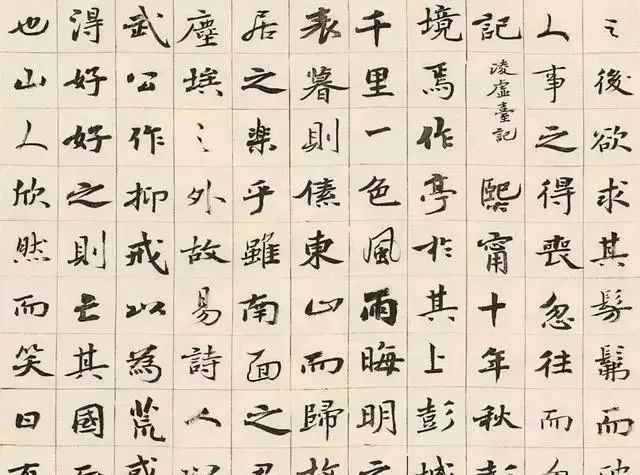 之後欲求其髣髴而
人事之得喪忽往而
記凌虛臺記熙甯十年秋
境焉作亭於其上彭城
千里一色風雨晦明之
表暮則傃東山而歸故
居之樂乎雖南面之君
塵埃之外故易詩人
武公作抑戒以為荒或
得好好之則亡其國而
也山人欣然而笑曰有